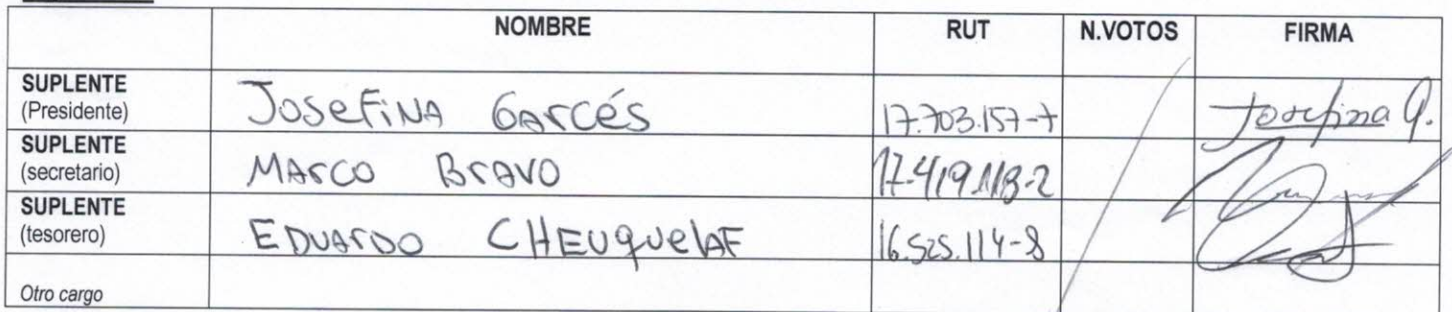 NOMBRE RUT N.VOTOS FIRMA
SUPLENTE
(Presidente) JOSEFINA GARCÉS 17.703.157-7 Josefina G.
SUPLENTE
(secretario) MARCO BRAVO 17.419.118-2
SUPLENTE
(tesorero) EDUARDO CHEUQUELAF 16.525.114-8
Otro cargo